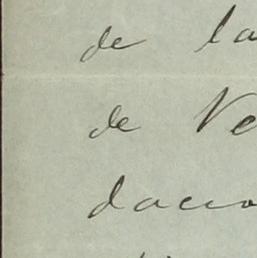 de la
de Ve
dacio